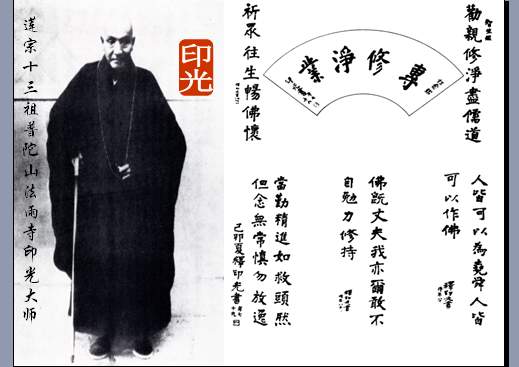 勸親修淨盡儒道
祈眾往生暢佛懷
專修淨業
人皆可以為堯舜人皆
可以作佛
佛既丈夫我亦爾敢不
自勉力修持
當勤精進如救頭然
但念無常慎勿放逸
己卯夏釋印光書
印光
莲宗十三祖普陀山法雨寺印光大师